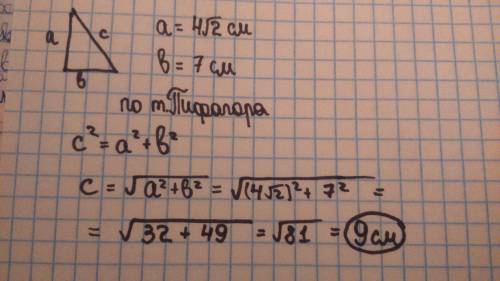 a c b
a = 4√2 см
в = 7 см
по т. Пифагора
c² = a² + в²
c = √(a² + в²) = √((4√2)² + 7²) =
= √(32 + 49) = √81 = 9 см